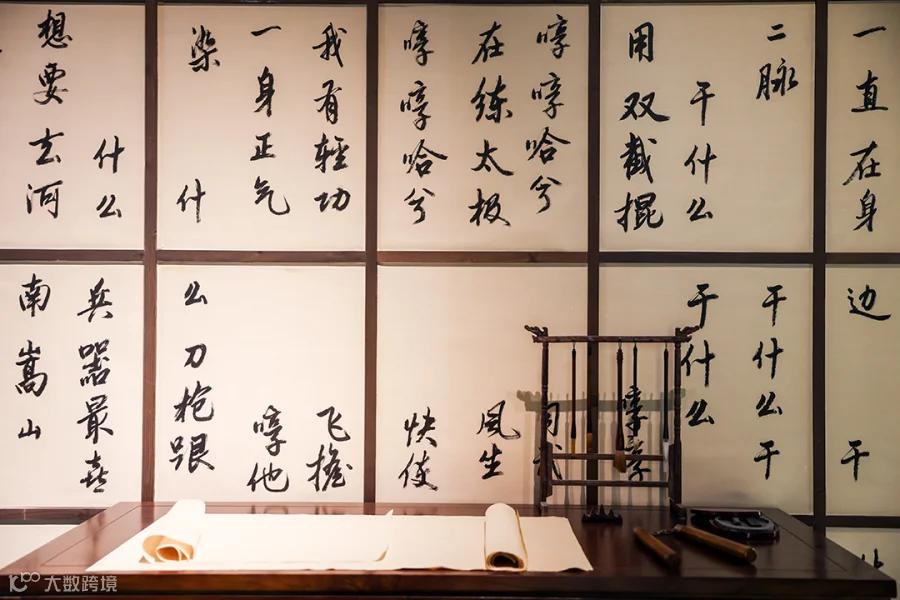 一直在身边 干
二脉 干什么干
干什么 干什么
用双截棍 哼
哼哼哈兮 习武
在练太极 风生
哼哼哈兮 快使
我有輕功 飞檐
一身正气 哼他
染 什么刀枪跟
什么 兵器最喜
想要去河南嵩山
大数跨境